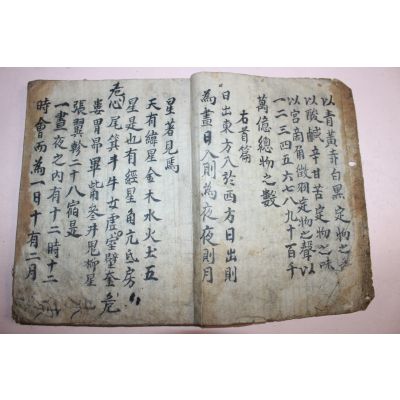 以青黃赤白黑定物之
以酸鹹辛甘苦定物之味
以宮商角徵羽定物之聲以
一二三四五六七八九十百千
萬億總物之數
右首篇
日出東方入於西方日出則
為晝日入則為夜夜則月
星著見焉
天有緯星金木水火土五
星是也有經星角亢氐房
心尾箕斗牛女虛室壁奎危
婁胃昴畢觜參井鬼柳星
張翼軫二十八宿是
一晝夜之內有十二時十二
時會而為一日十有二月